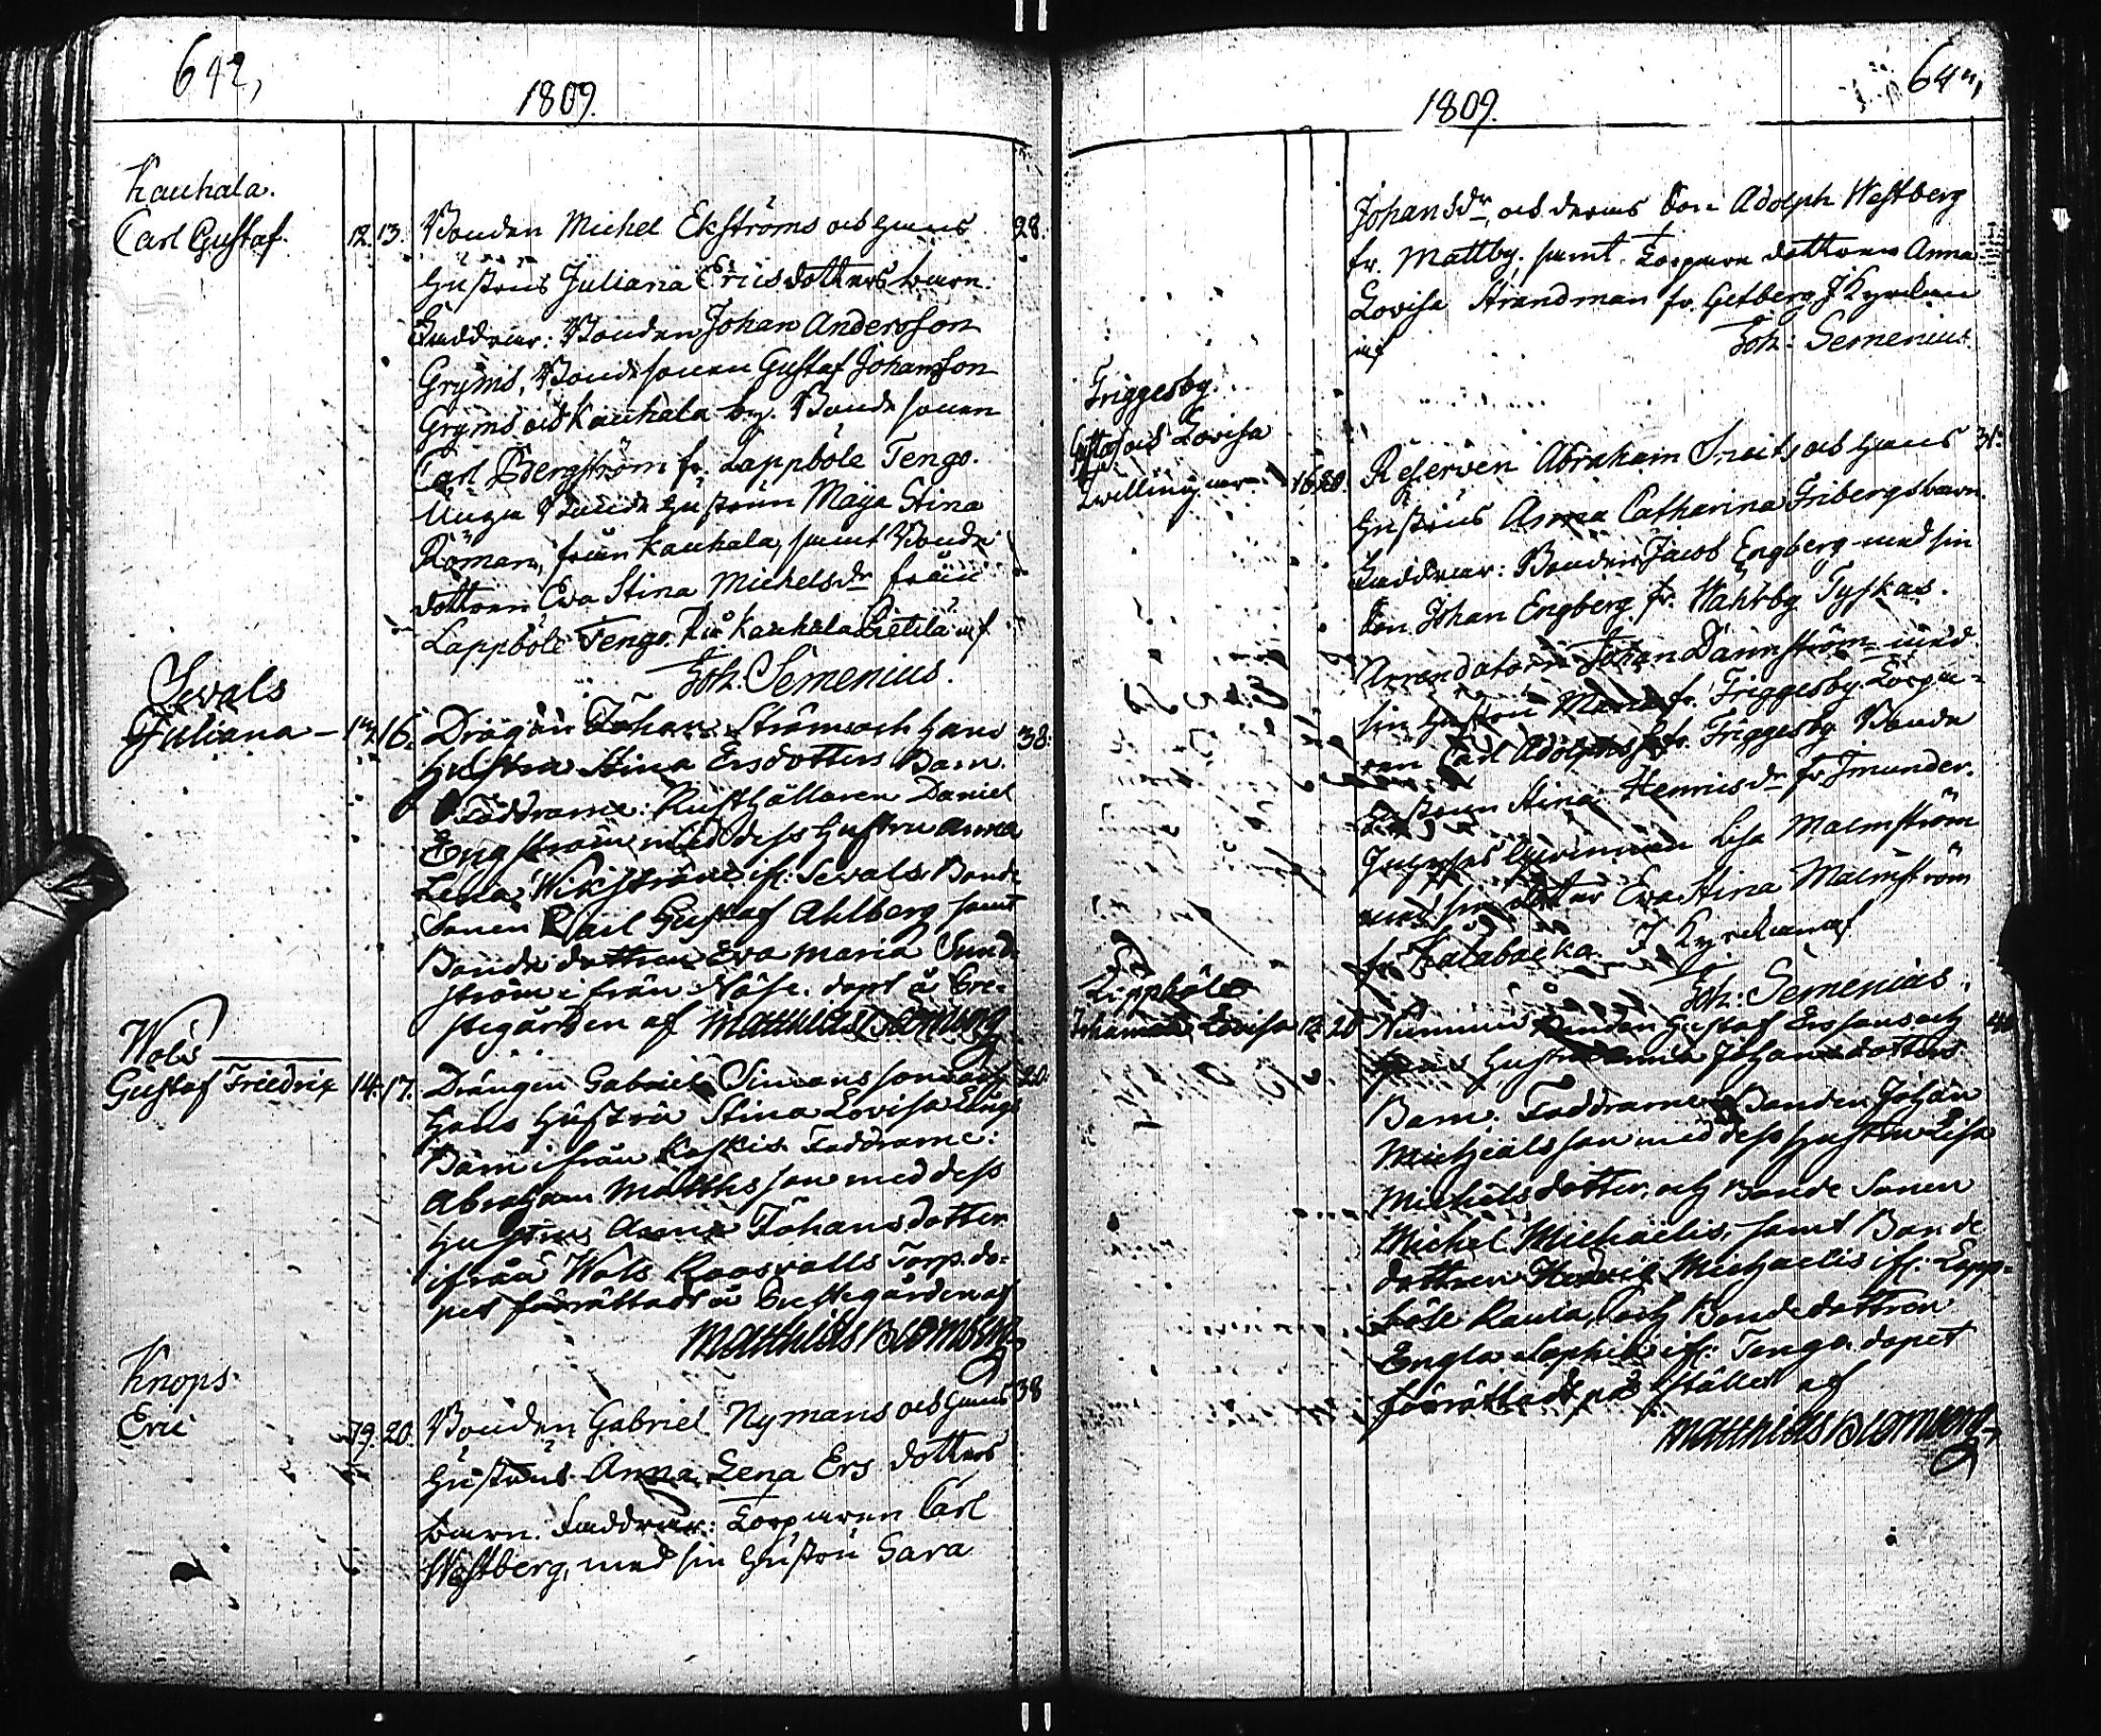 642,
1809.
Kauhala.
Carl Gustaf. 12. 13. Bonden Michel Ekströms och hans 28.
hustrus Juliana Ericsdotters barn.
Faddrar: Bonden Johan Andersson
Gryms, Bondesonen Gustaf Johansson
Gryms och Kauhala by. Bondesonen
Carl Bergström fr. Lappböle Tengo.
Unga Bonde hustrun Maja Stina
Roman, från Kauhala, samt Bonde
dottren Eva Stina Michelsdr från
Lappböle Tengo. På Kauhala Pietilä af
Joh: Semenius.
Sevals
Juliana – 16. Dragon Johan Ström och hans 38.
Hustru Stina Ersdotters Barn.
Faddrarne: Rusthållaren Daniel
Engström med dess hustru Anna
Lena Wikström ifr: Sevals Bonde
Sonen Carl Gustaf Ahlberg samt
Bonde dottren Eva Maria Sund
ström ifrån Näse. döpt å Pre-
stegården af Matthias Blomberg
Wols
Gustaf Friedric 14. 17. Drängen Gabriel Simonssons och 20.
Hans Hustru Stina Lovisa Långs
Barn ifrån Koskis Faddrarne:
Abraham Matthsson med dess
Hustru Anna Johansdotter
ifrån Wols Roosvalls Torp. do-
pet förrättadt å Prestegården af
Matthias Blomberg
Knops.
Eric 19. 20. Bonden Gabriel Nymans och hans 38
hustrus Anna Lena Ers dotters
barn. Faddrar: Torparen Carl
Westberg, med sin hustru Sara
1809.
Johansdr och deras Son Adolph Westberg
fr. Mattby, samt Torpare dottren Anna
Lovisa Strandman fr. Getberg I Kyrckan
af Joh: Semenius.
Friggesby.
Gustaf och Lovisa
Tvillingar 16. 20. Reserven Abraham och hans 31.
hustrus Anna Catharina Fribergs barn.
Faddrar: Bonden Jacob Engberg med sin
Son Johan Engberg fr. Wahrby Tyskas.
Arrendatorn Johan Dannström med
sin hustru Maria fr. Friggesby. Torpa-
ren Carl Adolphs fr. Friggesby Bonde
hustrun Stina Henricsdr fr.
Lisa Malmström
med sin dotter Eva Stina Malmström
fr. Kalabacka. I Kyrckan af
Joh: Semenius.
Lappböle
Johanna Lovisa 12. 20 Gustaf Erssons och 40
Hans Hustru Anna Johansdotters
Barn. Faddrarne Bonden Johan
Michelsson med dess hustru Lisa
Michelsdotter, och Bonde Sonen
Michel Michaelis, samt Bonde
dottren Hedvig Michaelis ifr: Lapp-
böle Raula, och Bondedottren
Engla Sophia ifr: Tengo dopet
förrättadt på stället af
Matthias Blomberg